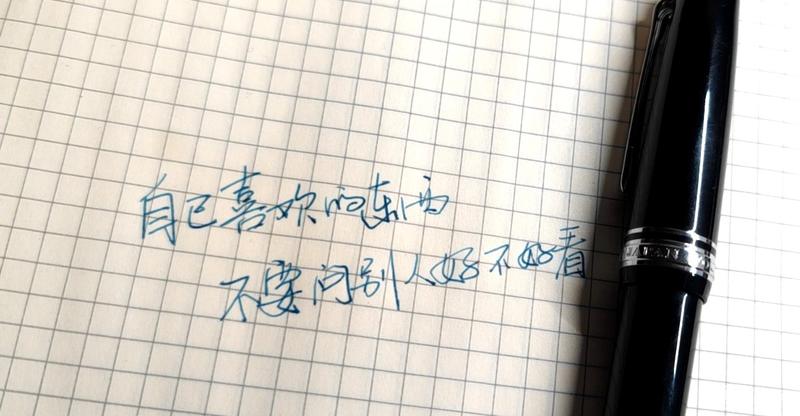 自己喜欢的东西
不要问别人好不好看
JAPAN